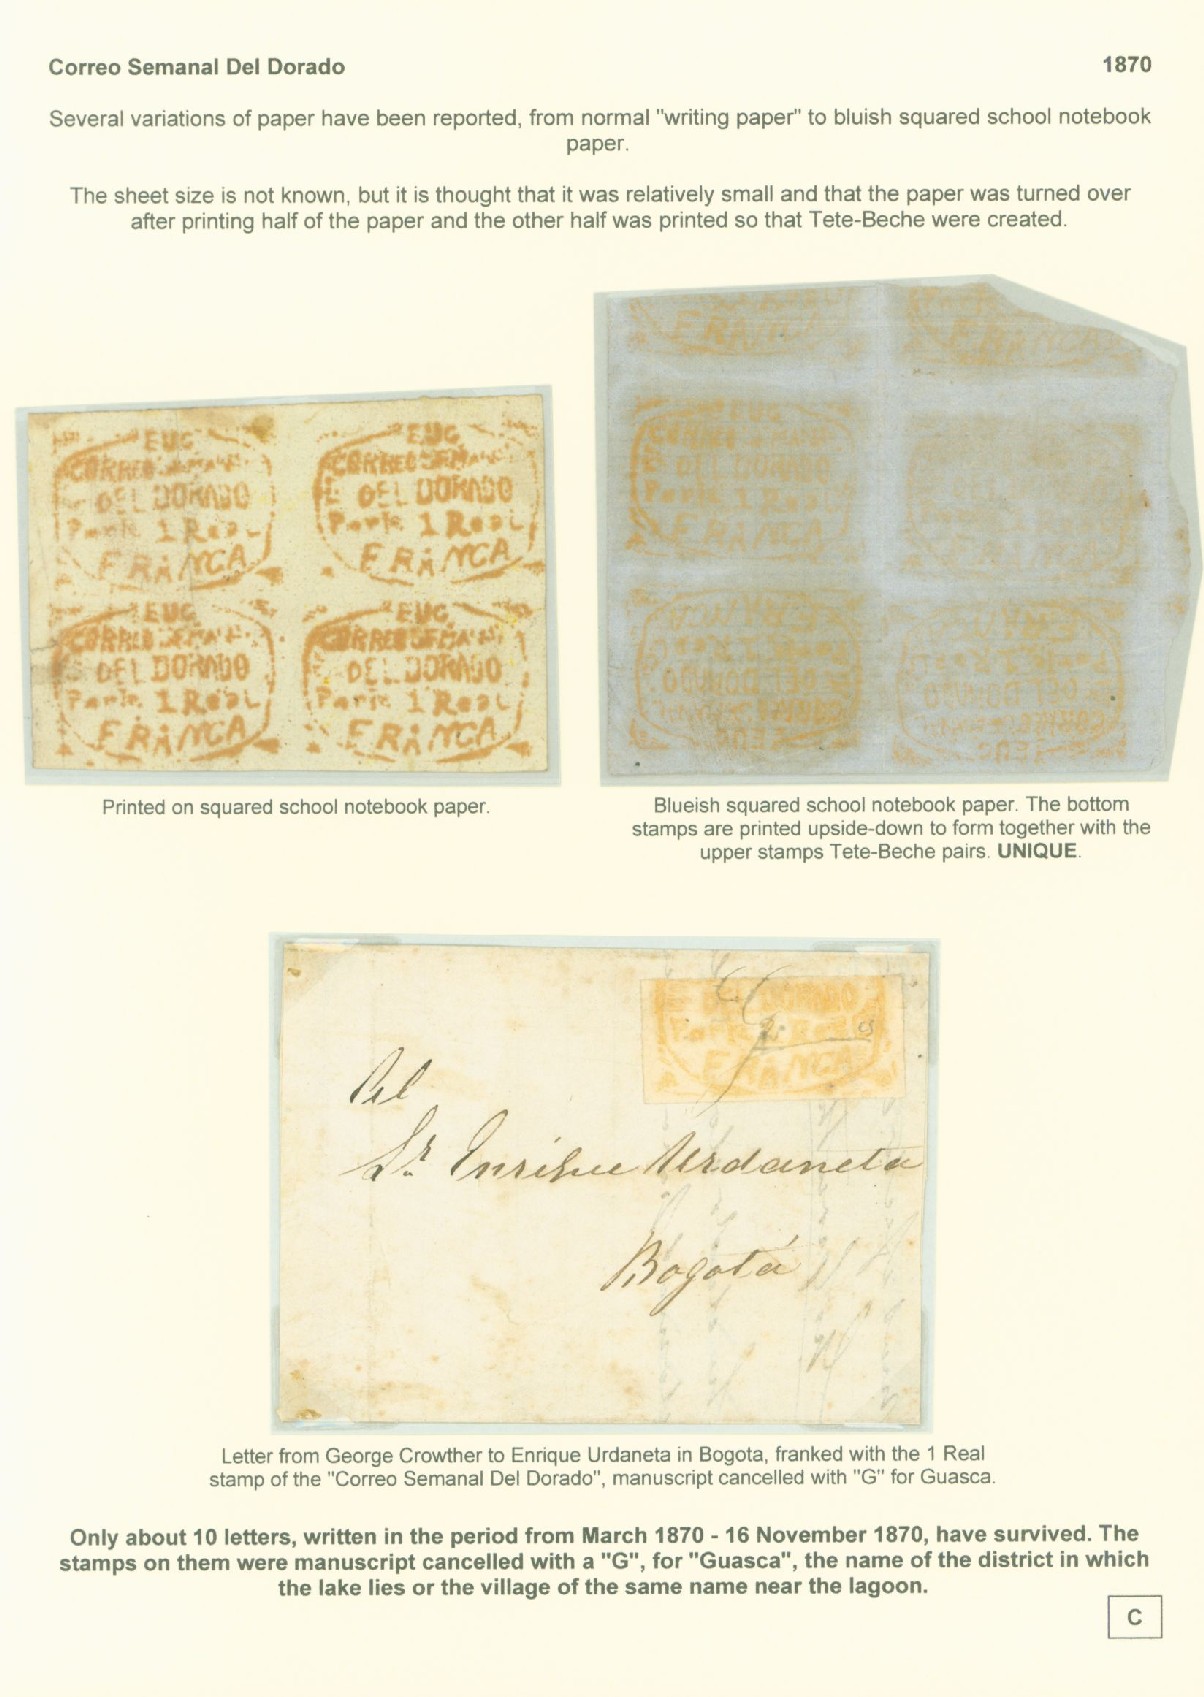 Correo Semanal Del Dorado 1870
Several variations of paper have been reported, from normal "writing paper" to bluish squared school notebook
paper.
The sheet size is not known, but it is thought that it was relatively small and that the paper was turned over
after printing half of the paper and the other half was printed so that Tete-Beche were created.
EUG
CORREO SEMANAL
DEL DORADO
Porte 1 Real
FRANCA
EUG
CORREO SEMANAL
DEL DORADO
Porte 1 Real
FRANCA
EUG
CORREO SEMANAL
DEL DORADO
Porte 1 Real
FRANCA
EUG
CORREO SEMANAL
DEL DORADO
Porte 1 Real
FRANCA
FRANCA
FRANCA
EUG
CORREO SEMANAL
DEL DORADO
Porte 1 Real
FRANCA
FRANCA
FRANCA
Porte 1 Real
DEL DORADO
CORREO
EUG
FRANCA
Porte 1 Real
DEL DORADO
CORREO
EUG
Printed on squared school notebook paper.
Blueish squared school notebook paper. The bottom
stamps are printed upside-down to form together with the
upper stamps Tete-Beche pairs. UNIQUE.
DEL DORADO
Porte 1 Real
FRANCA
G
Al
Sr. Enrique Urdaneta
Bogotá
Letter from George Crowther to Enrique Urdaneta in Bogota, franked with the 1 Real
stamp of the "Correo Semanal Del Dorado", manuscript cancelled with "G" for Guasca.
Only about 10 letters, written in the period from March 1870 - 16 November 1870, have survived. The
stamps on them were manuscript cancelled with a "G", for "Guasca", the name of the district in which
the lake lies or the village of the same name near the lagoon.
C